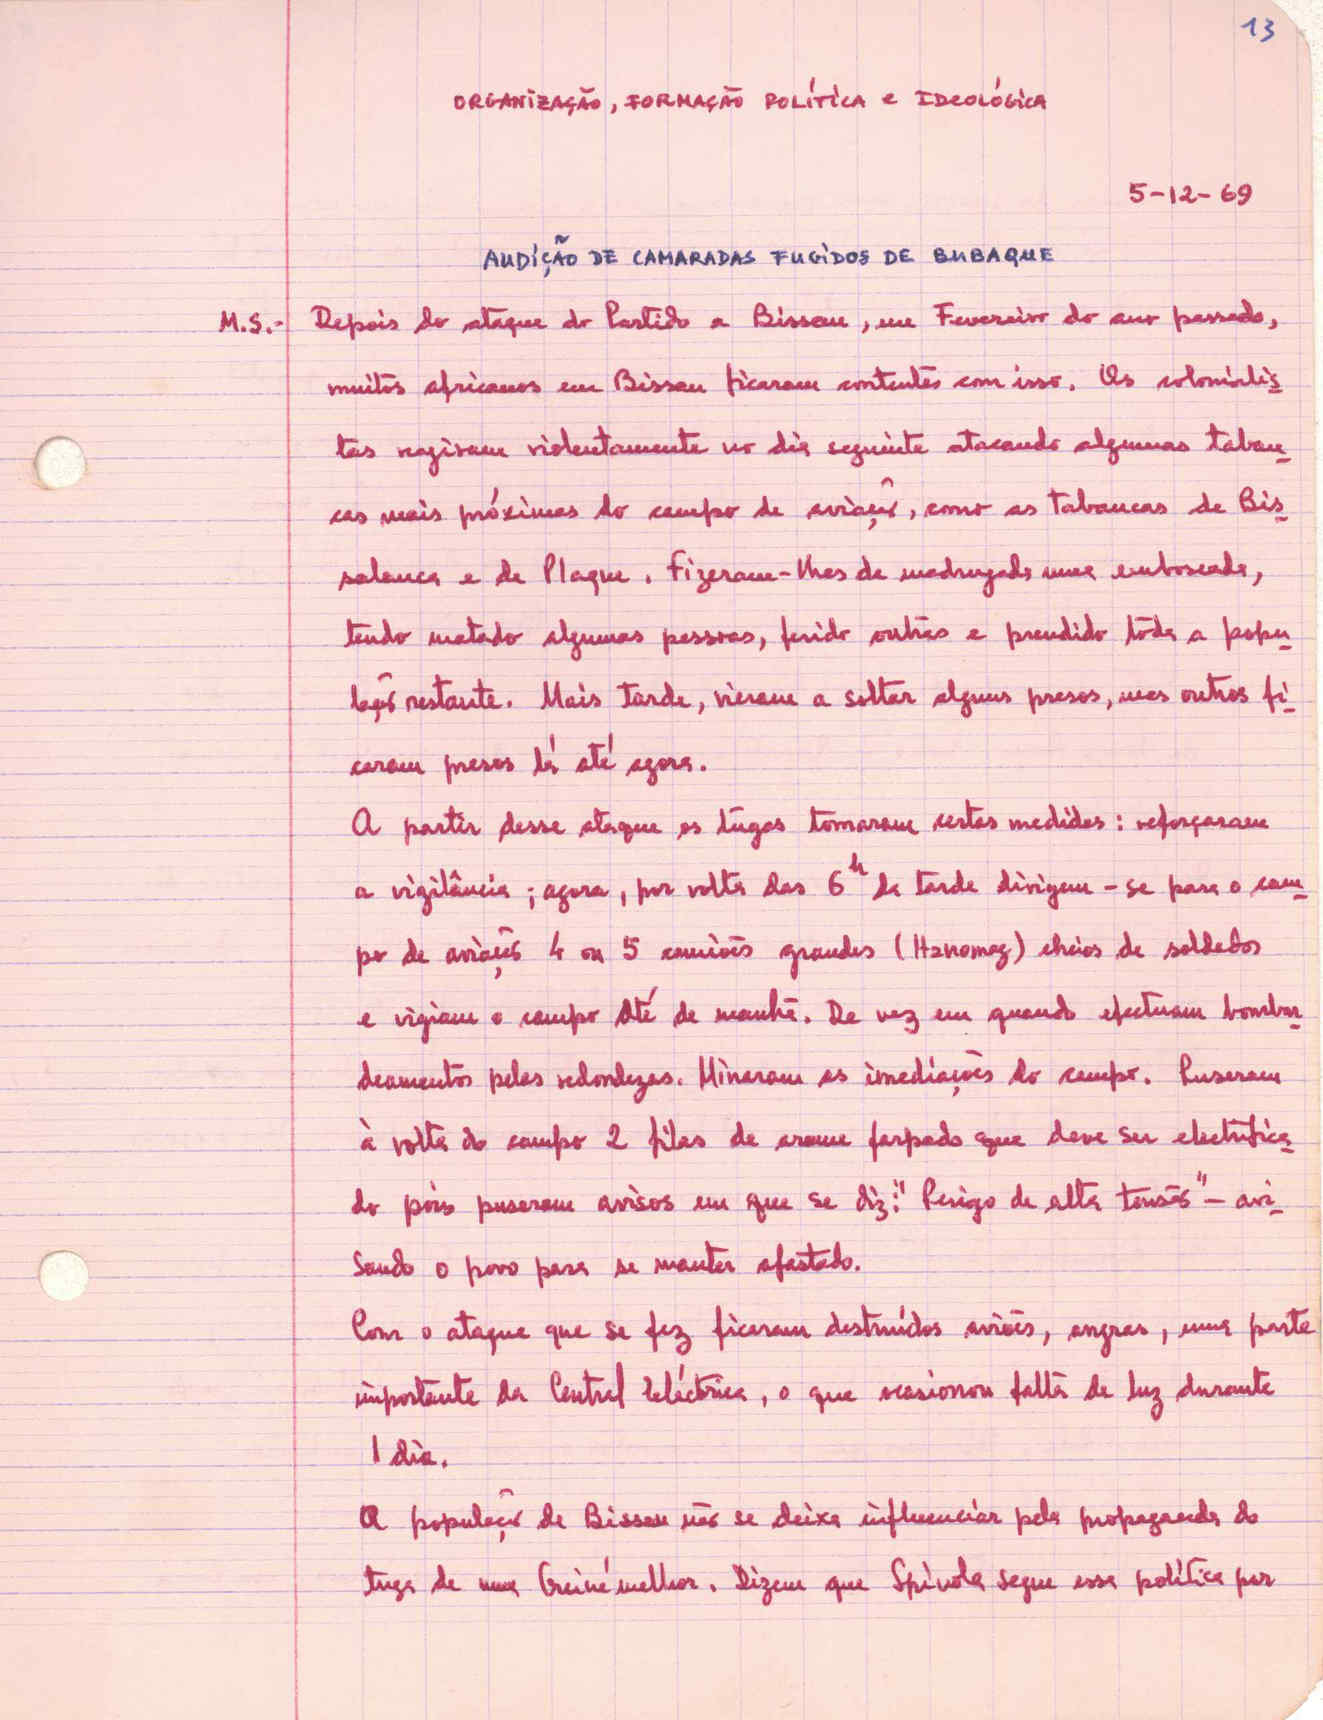 13
ORGANIZAÇÃO, FORMAÇÃO POLÍTICA e IDEOLÓGICA
5-12-69
AUDIÇÃO DE CAMARADAS FUGIDOS DE BUBAQUE
M.S.- Depois do ataque do Partido a Bissau, em Fevereiro do ano passado,
muitos africanos em Bissau ficaram contentes com isso. Os colonialis
tas reagiram violentamente no dia seguinte atacando algumas taban
cas mais próximas do campo de aviação, como as tabancas de Bis
salanca e de Plaque. Fizeram-lhes de madrugada uma emboscada,
tendo matado algumas pessoas, ferido outras e prendido tôda a popu
lação restante. Mais tarde, vieram a soltar alguns presos, mas outros fi
caram presos lá até agora.
A partir desse ataque os tugas tomaram certas medidas: reforçaram
a vigilância; agora, por volta das 6h da tarde dirigem-se para o cam
po de aviação 4 ou 5 camiões grandes (Hanomag) cheios de soldados
e vigiam o campo até de manhã. De vez em quando efectuam bombar
deamentos pelas redondezas. Minaram as imediações do campo. Puseram
à volta do campo 2 filas de arame farpado que deve ser electrifica
do pois puseram avisos em que se diz: "Perigo de alta tensão" - avi
sando o povo para se manter afastado.
Com o ataque que se fez ficaram destruídos aviões, angras, uma parte
importante da Central Eléctrica, o que ocasionou falta de luz durante
1 dia.
A população de Bissau não se deixa influenciar pela propaganda do
tuga de uma Guiné melhor. Dizem que Spínola segue essa política por